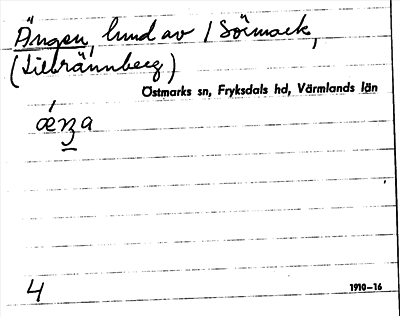 Ängen, lund av 1 Sörmark,
(Liebrännberg)
Östmarks sn, Fryksdals hd, Värmlands län
4
1910–16